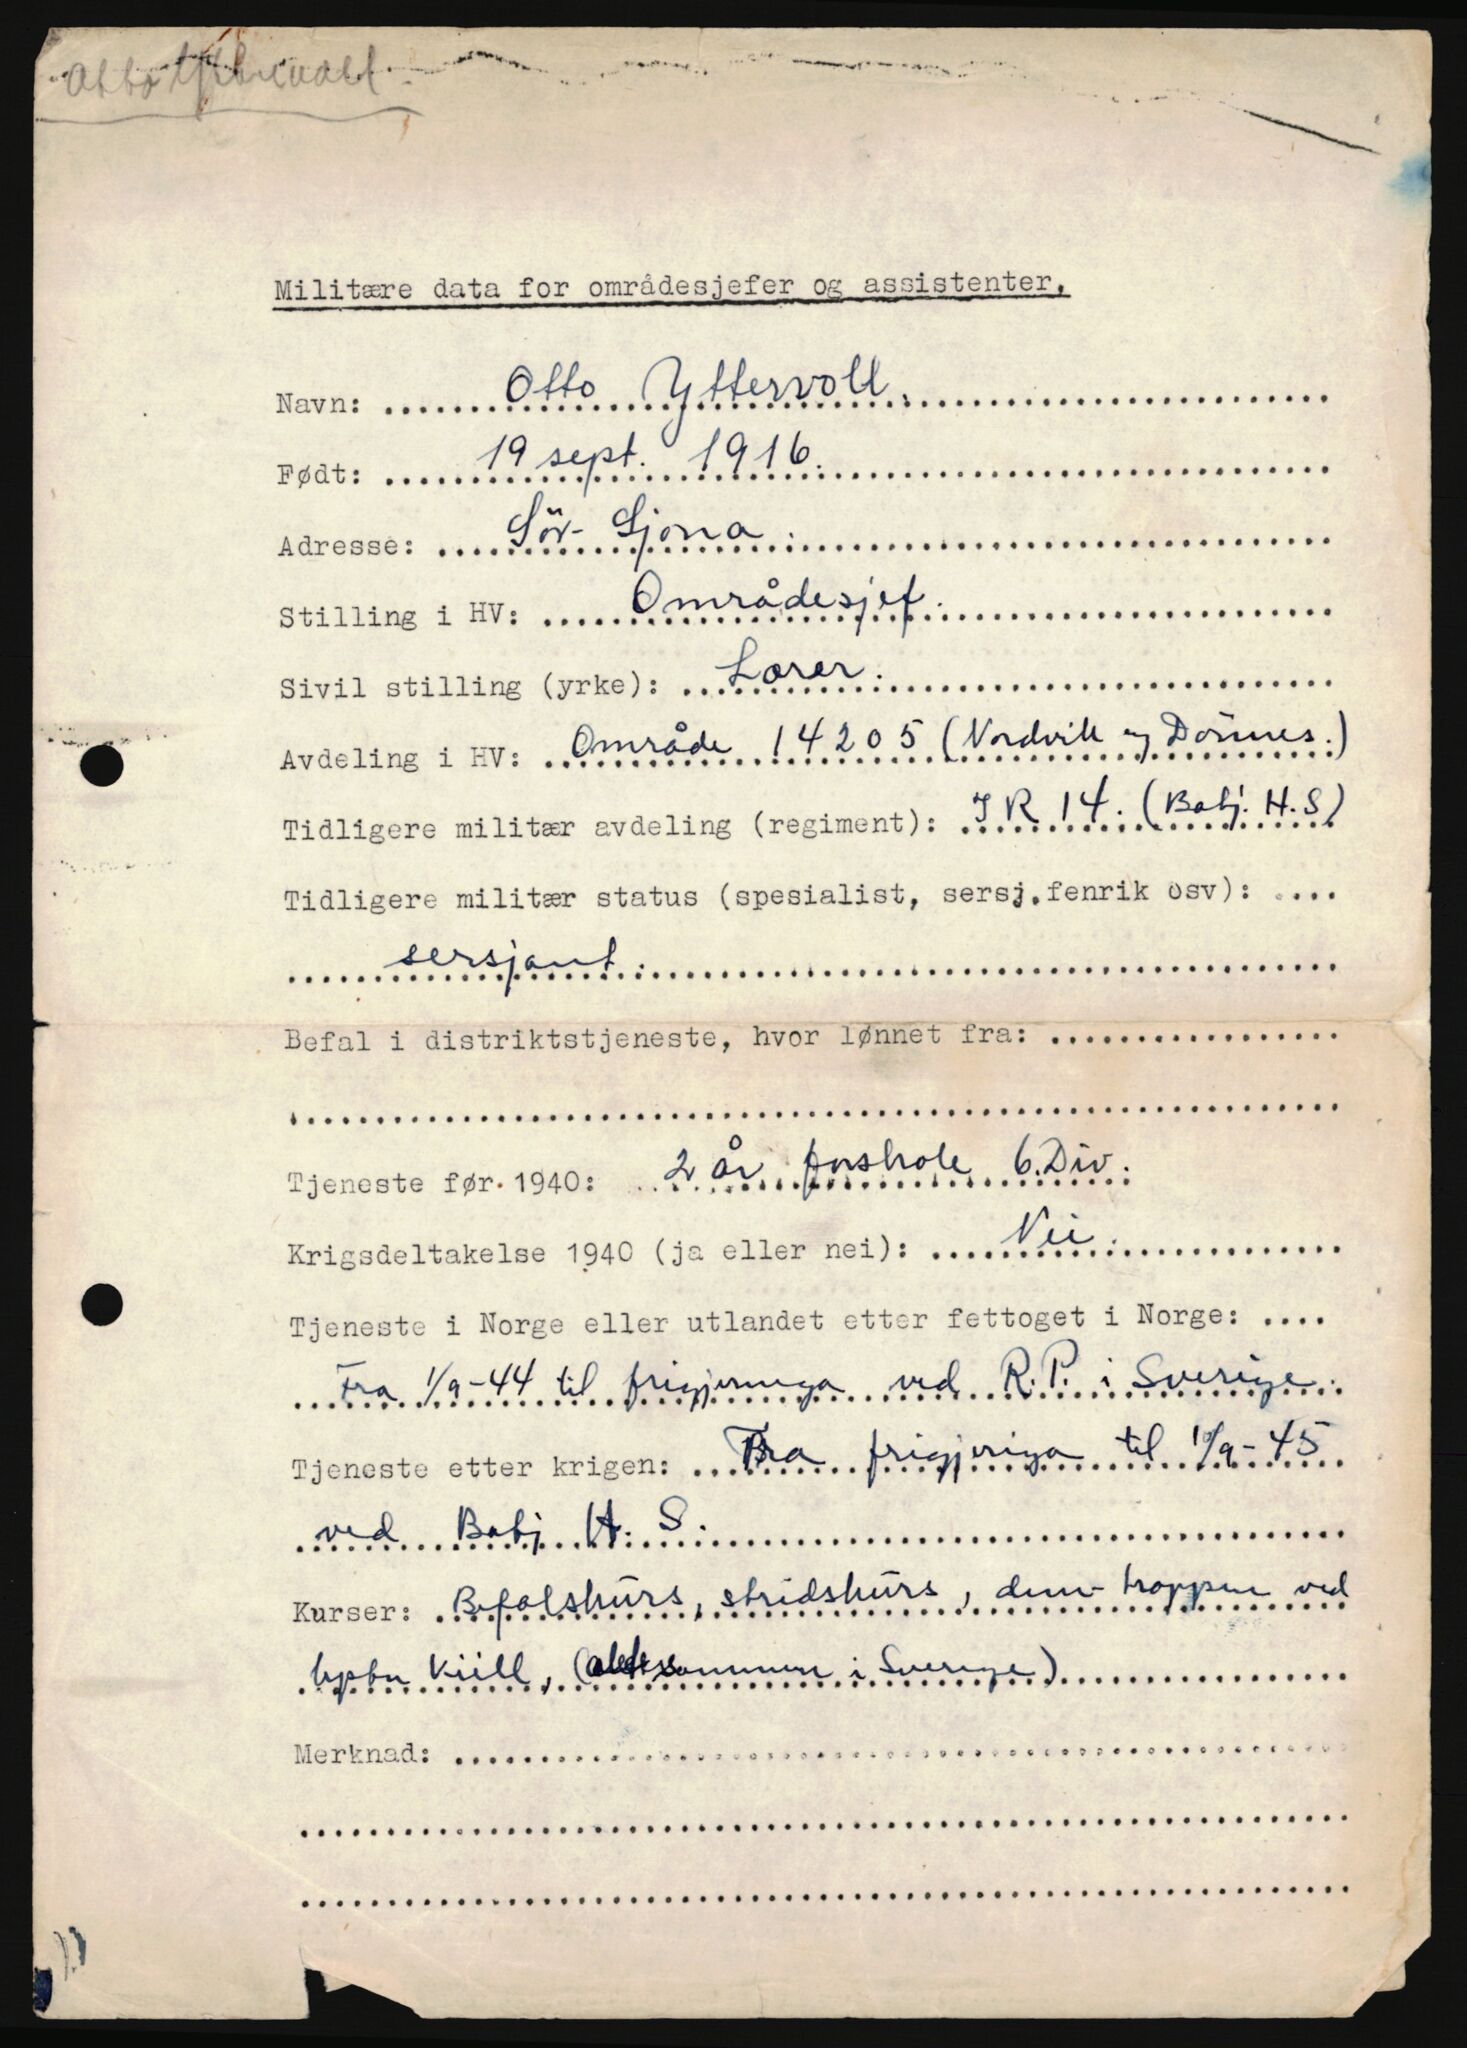 Otto Yttervoll
Militære data for områdesjefer og assistenter.
Navn: Otto Yttervoll.
Født: 19 sept. 1916.
Adresse: Sör-Sjona.
Stilling i HV: Områdesjef.
Sivil stilling (yrke): Lærer.
Avdeling i HV: Område 14205 (Nordvik og Dönnes.)
Tidligere militær avdeling (regiment): IR 14. (Batj. H.S)
Tidligere militær status (spesialist, sersj.fenrik osv):
sersjant.
Befal i distriktstjeneste, hvor lønnet fra:
Tjeneste før 1940: 2 år forskole 6. Div.
Krigsdeltakelse 1940 (ja eller nei): Nei.
Tjeneste i Norge eller utlandet etter fettoget i Norge:
Fra 1/9-44 til frigjeringa ved R.P. i Sverige.
Tjeneste etter krigen: Fra frigjeringa til 10/9-45
ved Batj H. S.
Kurser: Befalskurs, stridskurs, dem-troppen ved
(altsammen i Sverige)
Merknad: